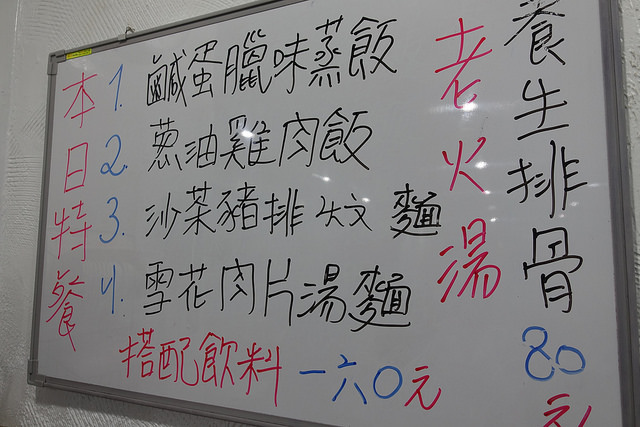 本日特餐
1. 鹹蛋臘味蒸飯
2. 蔥油雞肉飯
3. 沙茶豬排 麵
4. 雪花肉片湯麵
搭配飲料 一六〇元
老火湯
養生排骨
80元